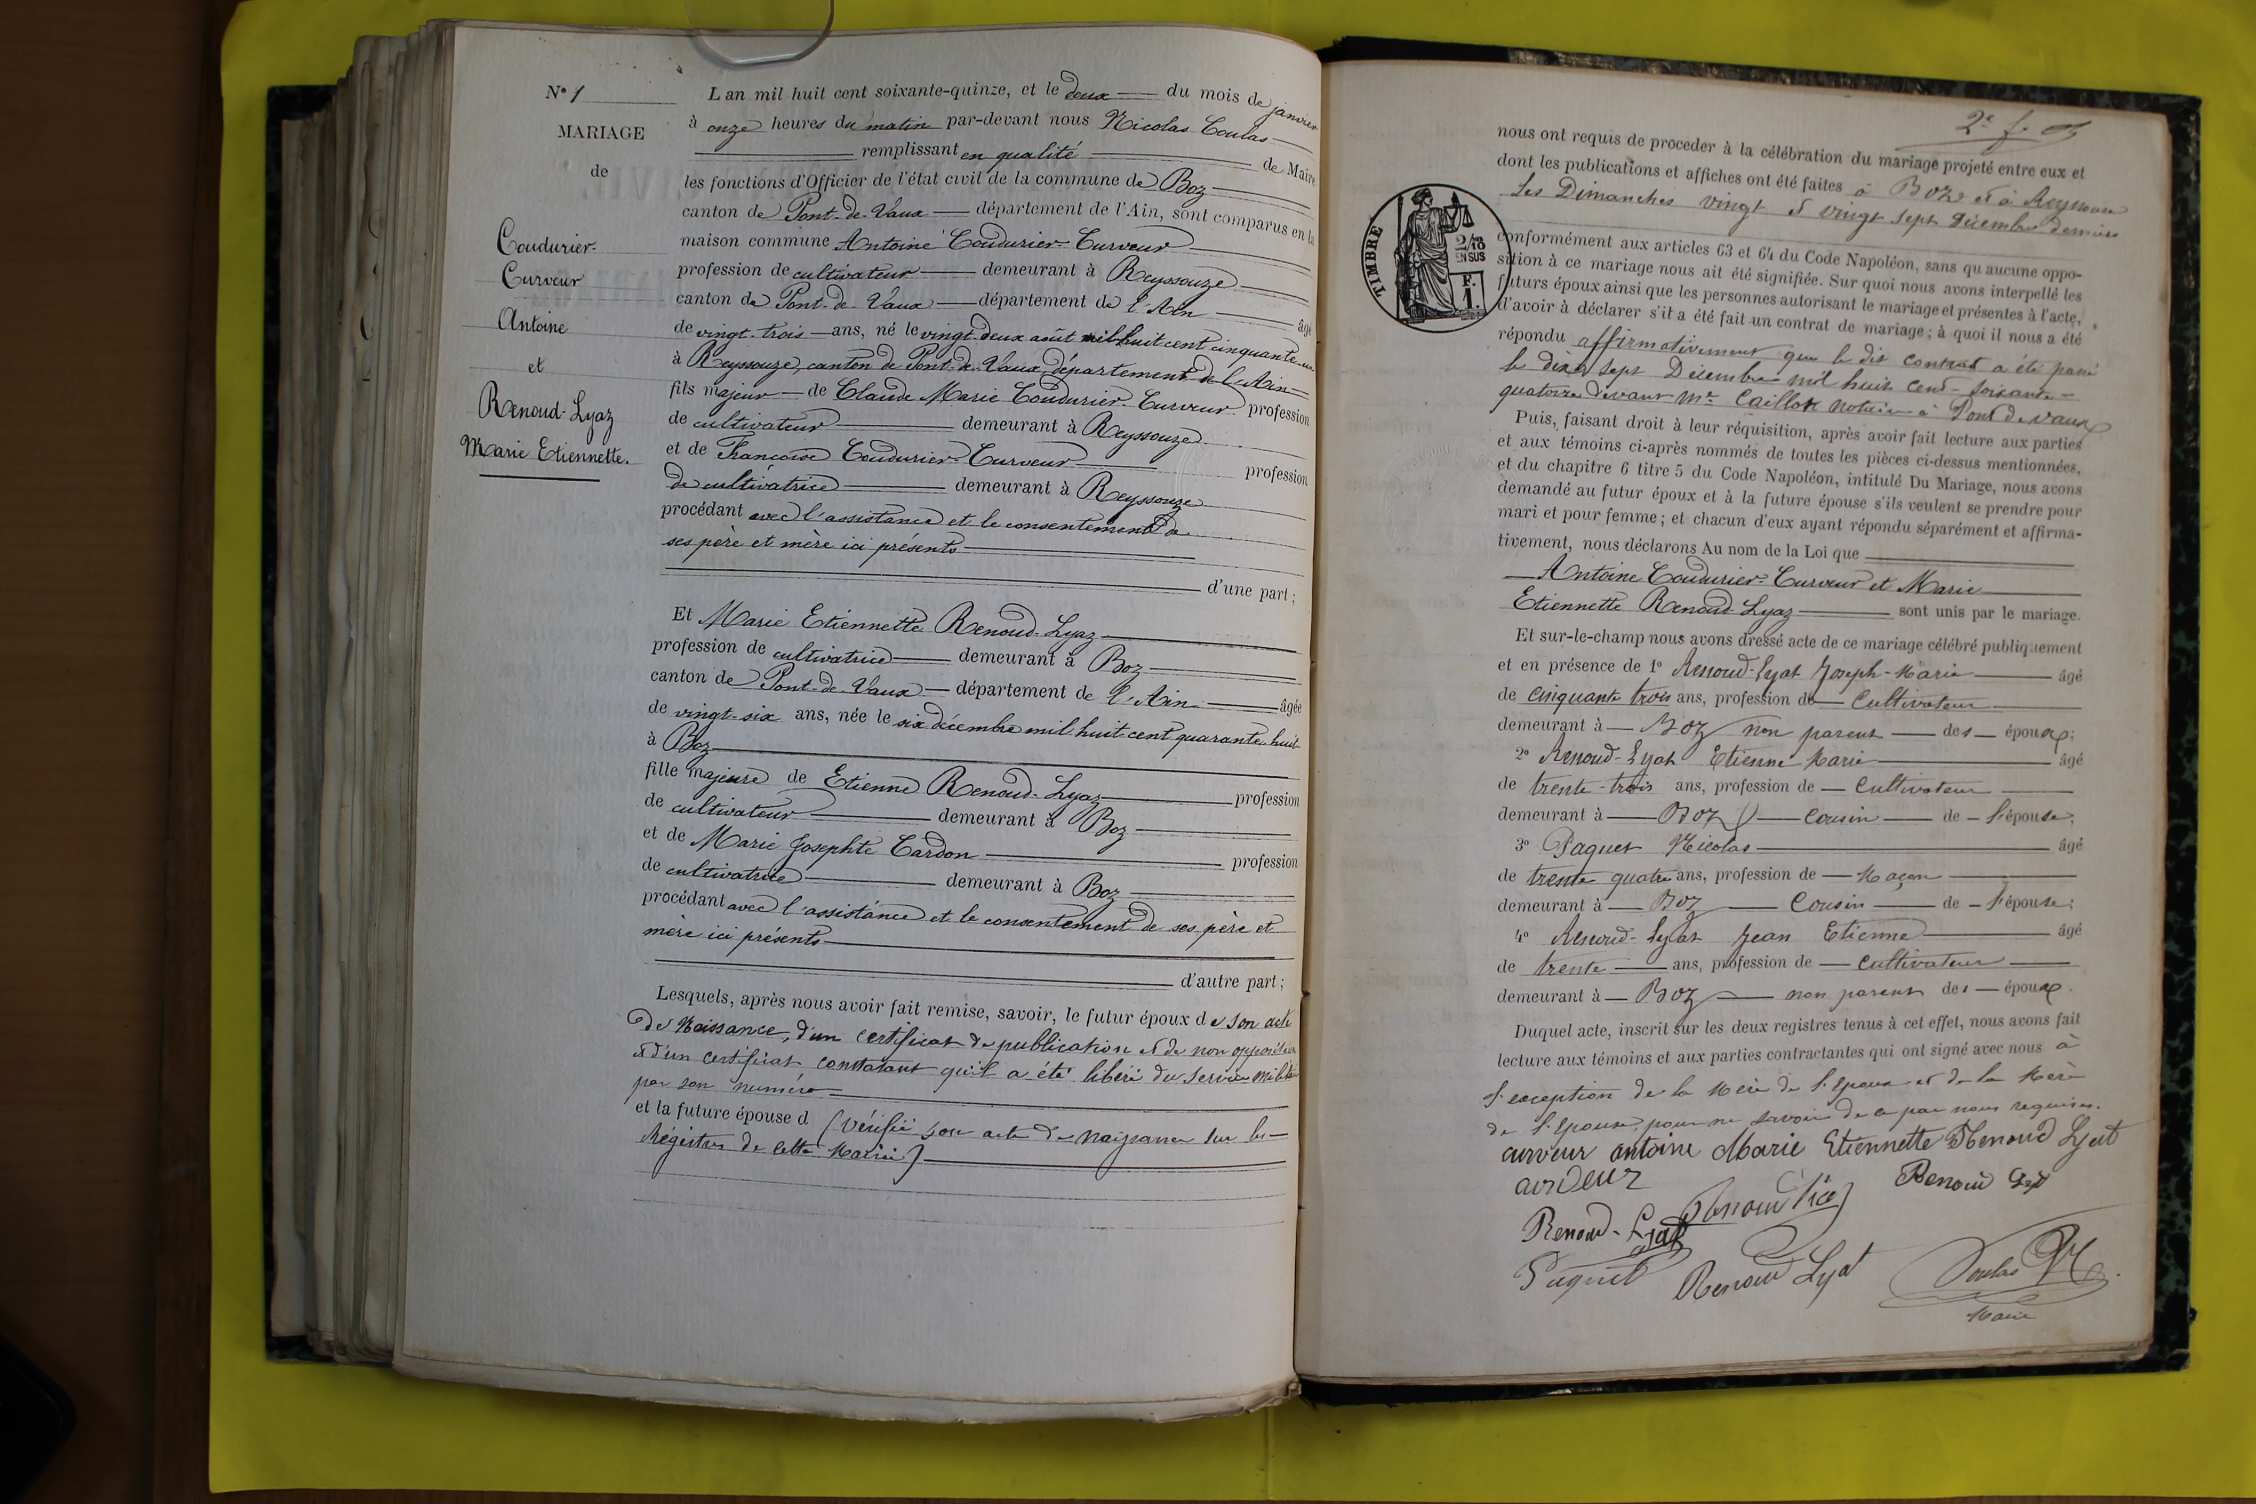 N° 1
MARIAGE
de
Coudurier-
Curveur
Antoine
et
Renoud-Lyaz
Marie Etiennette.
L an mil huit cent soixante-quinze, et le deux du mois de janvier
à onze heures du matin par-devant nous Nicolas Coulas
remplissant en qualité de Maire
les fonctions d'Officier de l'état civil de la commune de Boz
canton de Pont-de-Vaux département de l'Ain, sont comparus en la
maison commune Antoine Coudurier-Curveur
profession de cultivateur demeurant à Reyssouze
canton de Pont-de-Vaux département de l'Ain âgé
de vingt-trois ans, né le vingt-deux août mil huit cent cinquante-un
à Reyssouze, canton de Pont-de-Vaux, département de l'Ain
fils majeur de Claude Marie Coudurier-Curveur profession
de cultivateur demeurant à Reyssouze
et de Francoise Coudurier-Curveur profession
de cultivatrice demeurant à Reyssouze
procédant avec l'assistance et le consentement de
ses père et mère ici présents
d'une part;
Et Marie Etiennette Renoud-Lyaz
profession de cultivatrice demeurant à Boz
canton de Pont-de-Vaux département de l'Ain âgée
de vingt-six ans, née le six décembre mil huit cent quarante-huit
à Boz
fille majeure de Etienne Renoud-Lyaz profession
de cultivateur demeurant à Boz
et de Marie Josephte Cardon profession
de cultivatrice demeurant à Boz
procédant avec l'assistance et le consentement de ses père et
mère ici présents
d'autre part;
Lesquels, après nous avoir fait remise, savoir, le futur époux de son acte
de Naissance, d'un certificat de publication et de non opposition
et d'un certificat constatant qu'il a été libéré du service militaire
par son numéro
et la future épouse d (vérifié son acte de naissance sur les
Régistres de cette Mairie)
2e f.
nous ont requis de proceder à la célébration du mariage projeté entre eux et
dont les publications et affiches ont été faites à Boz et à Reyssouze
les Dimanches vingt et vingt sept Décembre derniers
TIMBRE
2/10
EN SUS
F.
1.
conformément aux articles 63 et 64 du Code Napoléon, sans qu aucune oppo-
sition à ce mariage nous ait été signifiée. Sur quoi nous avons interpellé les
futurs époux ainsi que les personnes autorisant le mariage et présentes à l'acte,
d'avoir à déclarer s'il a été fait un contrat de mariage; à quoi il nous a été
répondu affirmativement que le dit contrat a été passé
le dix sept Décembre mil huit cent soixante-
quatorze devant Mr Caillot notaire à Pont de vaux
Puis, faisant droit à leur réquisition, après avoir fait lecture aux parties
et aux témoins ci-après nommés de toutes les pièces ci-dessus mentionnées,
et du chapitre 6 titre 5 du Code Napoléon, intitulé Du Mariage, nous avons
demandé au futur époux et à la future épouse s'ils veulent se prendre pour
mari et pour femme; et chacun d'eux ayant répondu séparément et affirma-
tivement, nous déclarons Au nom de la Loi que
Antoine Coudurier-Curveur et Marie
Etiennette Renoud-Lyaz sont unis par le mariage.
Et sur-le-champ nous avons dressé acte de ce mariage célébré publiquement
et en présence de 1° Renoud-Lyat Joseph-Marie âgé
de cinquante trois ans, profession de Cultivateur
demeurant à Boz non parent des époux;
2° Renoud-Lyat Etienne-Marie âgé
de trente-trois ans, profession de Cultivateur
demeurant à Boz cousin de l'épouse;
3° Paquet Nicolas âgé
de trente quatre ans, profession de Maçon
demeurant à Boz Cousin de l'épouse;
4° Renoud-Lyat Jean Etienne âgé
de trente ans, profession de Cultivateur
demeurant à Boz non parent des époux.
Duquel acte, inscrit sur les deux registres tenus à cet effet, nous avons fait
lecture aux témoins et aux parties contractantes qui ont signé avec nous à
l'exception de la Mère de l'Epoux et de la Mère
de l'Epouse, pour ne savoir de ce par nous requises.
curveur antoine Marie Etiennette Renoud Lyat
Renoud Lyat
Renoud-Lyat
Paquet Renoud Lyat Coulas
Maire